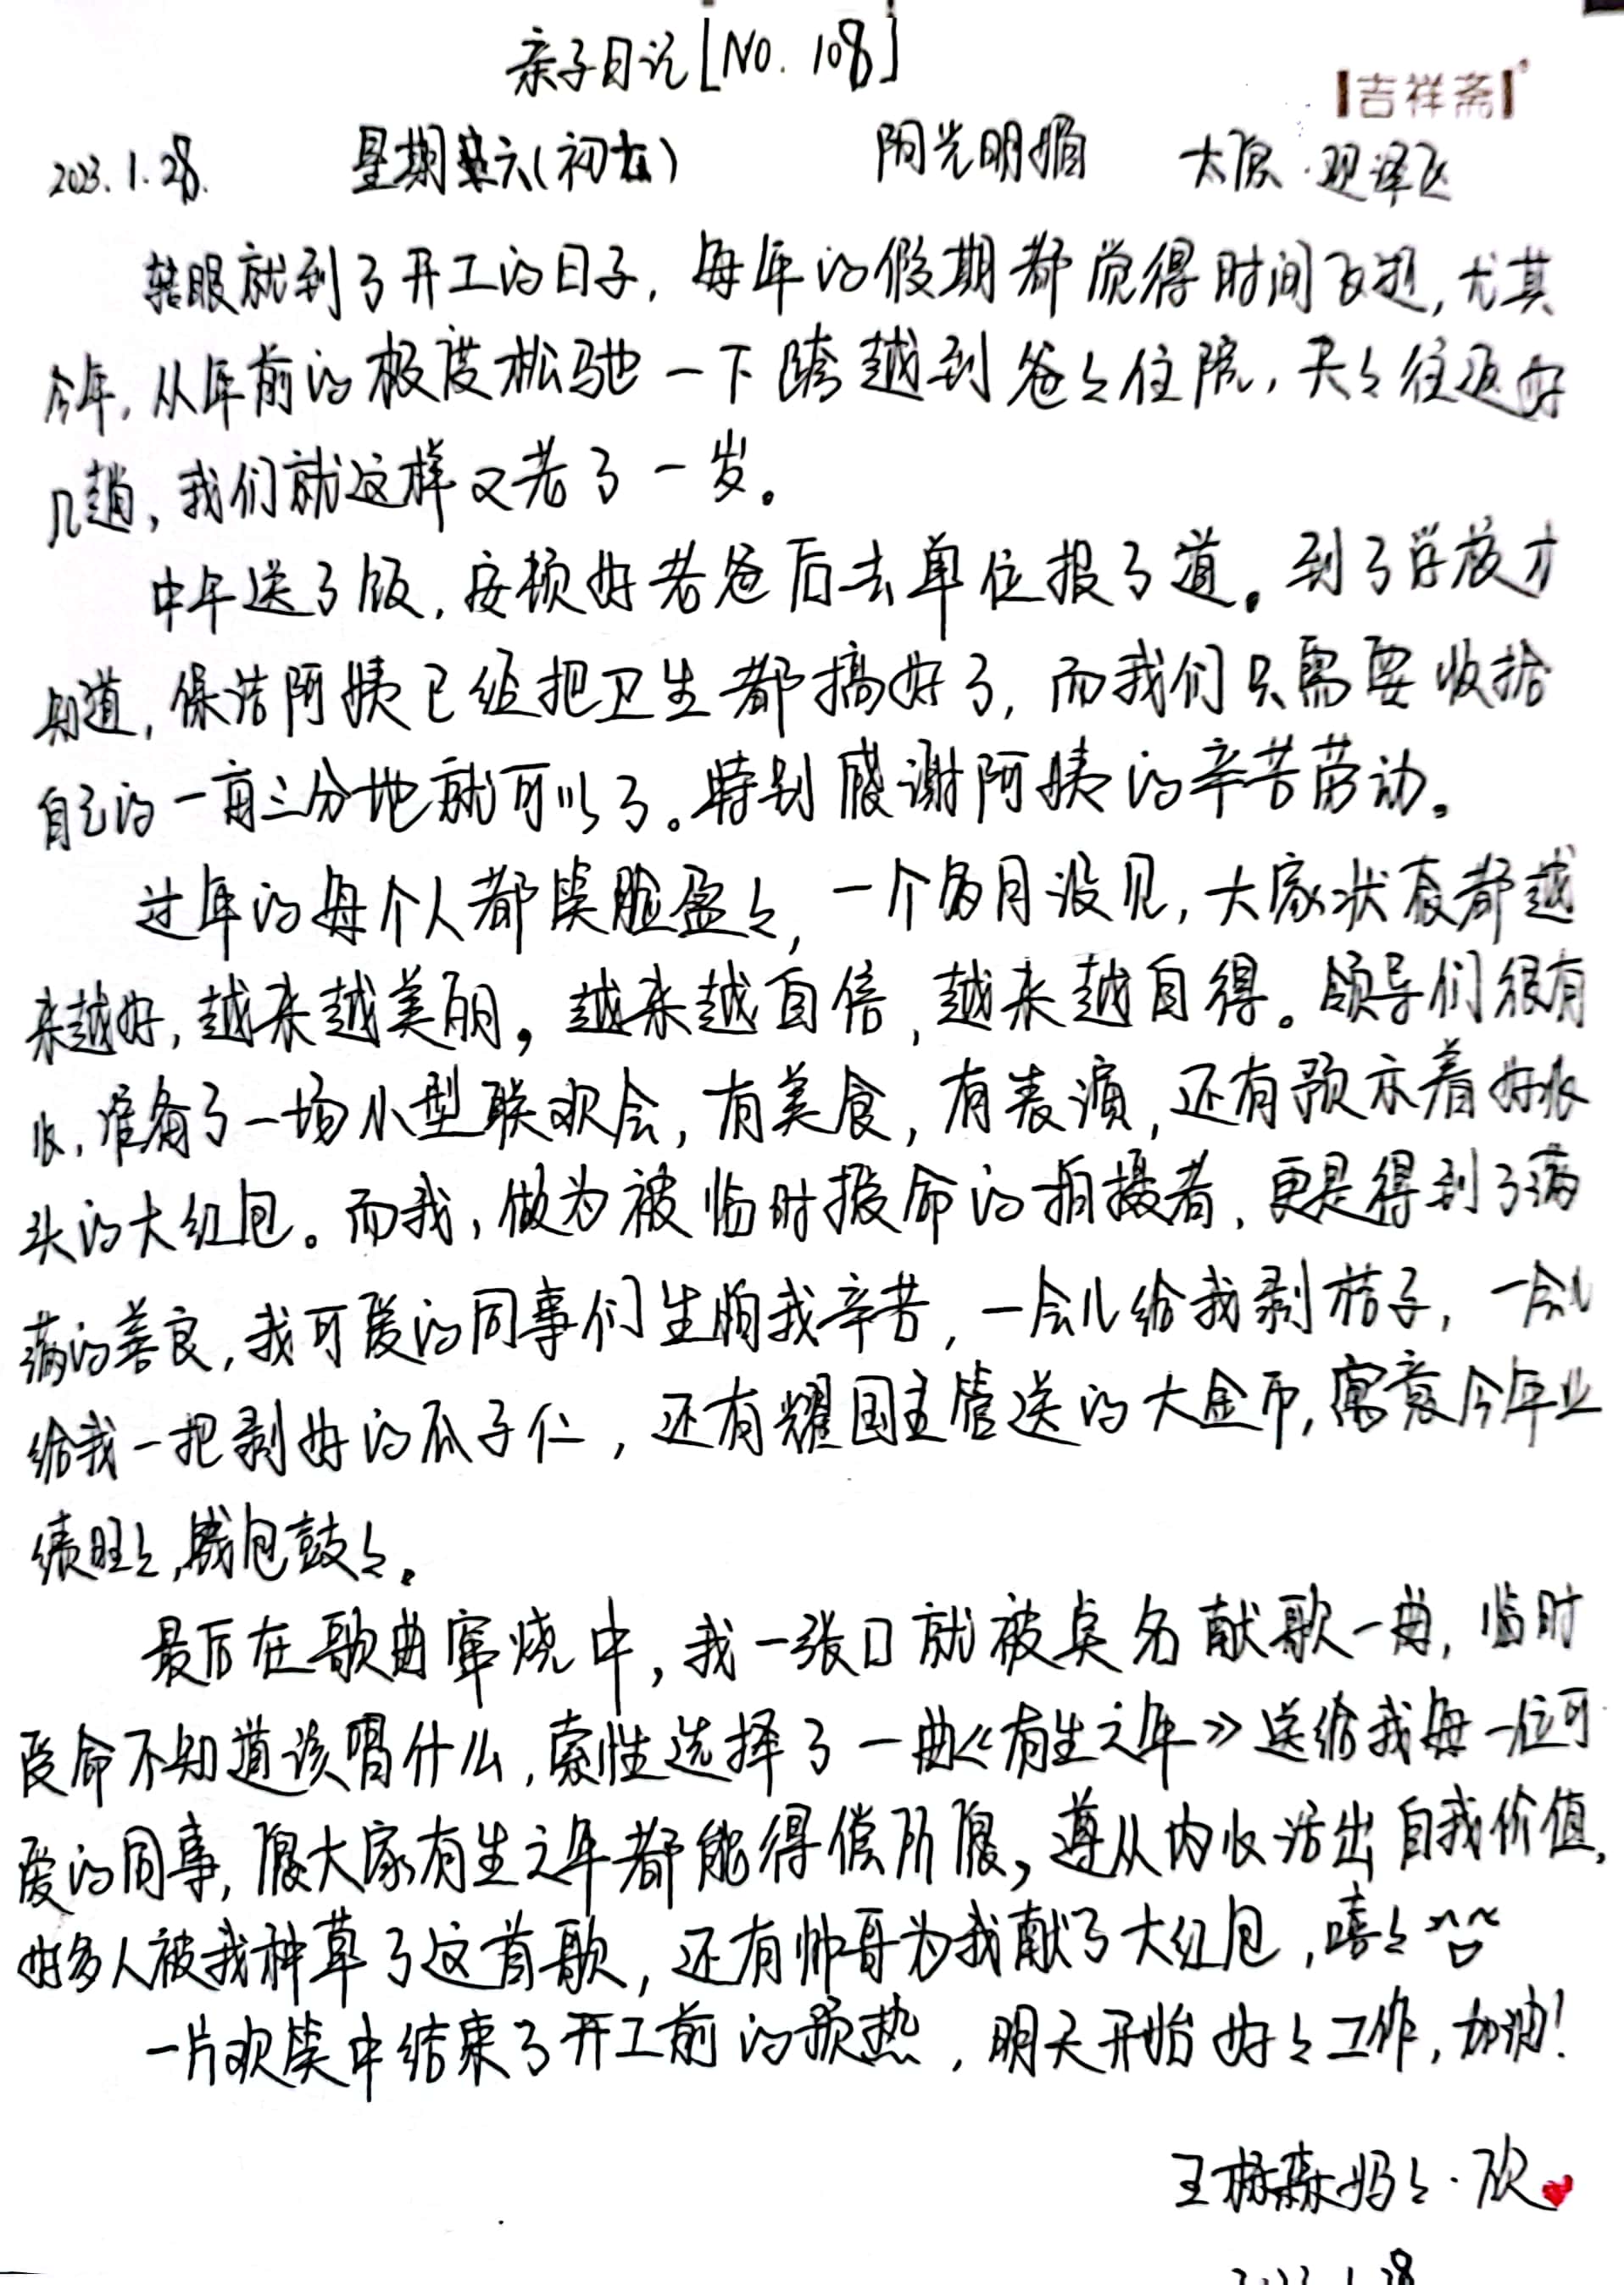 亲子日记[NO. 108]
吉祥斋
2023.1.28. 星期六(初七) 阳光明媚 太原·观泽
转眼就到了开工的日子,每年的假期都觉得时间飞逝,尤其
今年,从年前的极度松驰一下跨越到爸々住院,天々往返好
几趟,我们就这样又老了一岁。
中午送了饭,安顿好老爸后去单位报了道。到了学校才
知道,保洁阿姨已经把卫生都搞好了,而我们只需要收拾
自己的一亩三分地就可以了。特别感谢阿姨的辛苦劳动。
过年的每个人都笑脸盈々,一个多月没见,大家状态都越
来越好,越来越美丽,越来越自信,越来越自得。领导们很有
心,准备了一场小型联欢会,有美食,有表演,还有预示着好兆
头的大红包。而我,做为被临时授命的拍摄者,更是得到了满
满的善良,我可爱的同事们生怕我辛苦,一会儿给我剥桔子,一会儿
给我一把剥好的瓜子仁,还有耀国主管送的大金币,寓意今年业
绩旺々,钱包鼓々。
最后在歌曲串烧中,我一张口就被点名献歌一曲,临时
受命不知道该唱什么,索性选择了一曲《有生之年》送给我每一位可
爱的同事,愿大家有生之年都能得偿所愿,遵从内心活出自我价值,
好多人被我种草了这首歌,还有帅哥为我献了大红包,嘻々
一片欢笑中结束了开工前的预热,明天开始好々工作,加油!
王杨森妈々·欣
2023.1.28